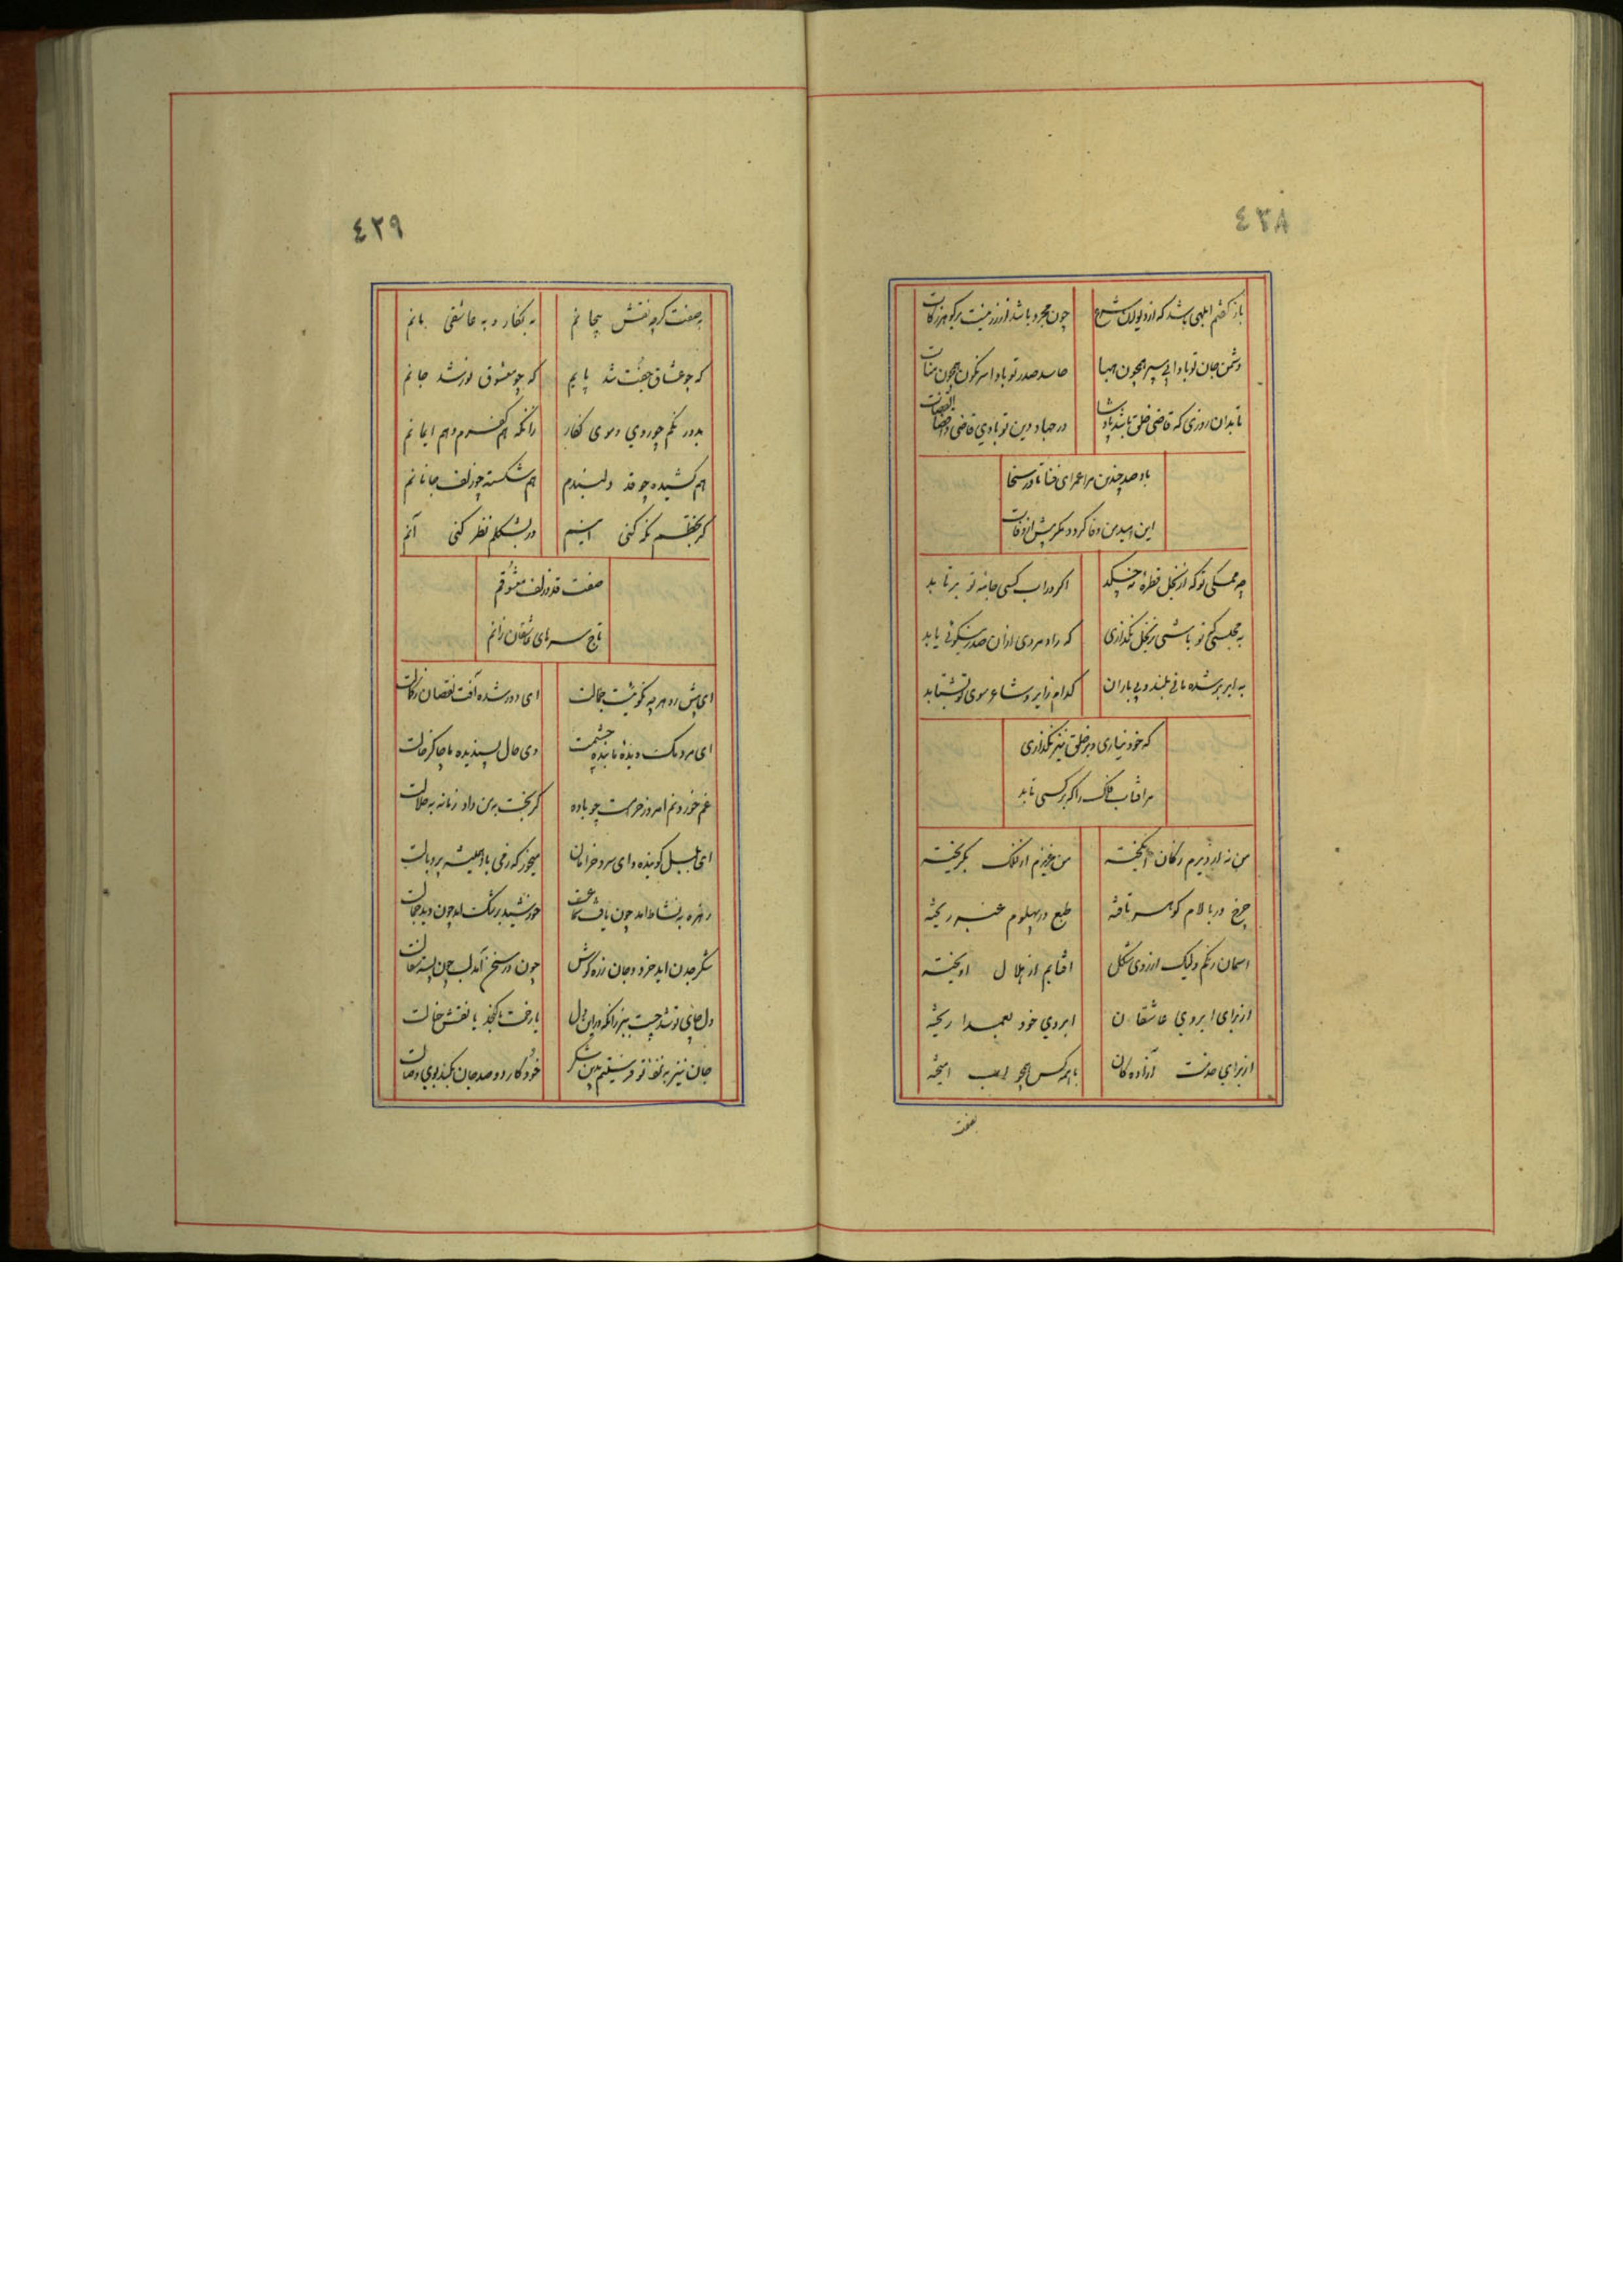 ٤٢٨
باز گفتم ابلهی باشد که از دیوان شرع
چون مجرد باشد از زر نیست بر کوهر زکات
دشمن جان تو بادا بی سپر همچون هبا
حاسد صدر تو بادا سرنگون همچون منات
تا بدان روزی که قاضی خلق باشد پادشا
در جهاد دین تو بادی قاضی و اقضی القضات
باد صد چندین مرا عمر ای ضیا تا در سخا
این امیدمن وفا کردد مکر پیش از وفات
چه ممسکی تو که از بخل قطرهٔ نچکد
اکر در اب کسی جامه تو برتابد
به مجلسی که تو باشی ز بخل نگذاری
که راد مردی ازان صدر نیکوئی یابد
به ابر بر شده مانی بلند و بی باران
کدام زایر و شاعر سوی تو بشتابد
که خود نباری و بر خلق نیز نگذاری
مر افتاب فلک را که بر کسی تابد
من نه ارزیزم ز کان انگیخته
من عزیزم از فلک بگریخته
چرخ در بالام کوهر تافته
طبع در پهلوم عنبر ریخته
اسمان رنگم ولیک از روی شکل
افتابم از هلال اویخته
از برای ابروی عاشقان
ابروی خود بعمدا ریخته
از برای خدمت آزاده کان
با همه کس همچو امیخته
بصفت
٤٢٩
بصفت کرچه نقش بیجانم
به نگار و به عاشقی مانم
که چو عشاق جفت شد پایم
که چو معشوق نو شد جانم
بدو رنگم چو روی و موی نگار
زانکه هم کفرم و هم ایمانم
هم کشیده چو قد دلبندم
هم شکسته چو زلف جانانم
کر بخطم نکه کنی اینم
ور بشکلم نظر کنی آنم
صفت قد و زلف معشوقم
تاج سرهای عاشقان زانم
ای پیش رو هر چه نکوئیست جمالت
ای دور شده آفت نقصان ز کمالت
ای مردمک دیدهٔ ما بندهٔ چشمت
وی حال پسندیده ما چاکر خالت
غم خوردنم امروز حرامست چو باده
کر بخت به من داد زمانه به حلالت
ای بلبل کوینده و ای سرو خرامان
میخور که ز می باد همیشه پر و بالت
زهره به نشاط اید چون یافت سماعت
خورشید برشک اید چون دید جمالت
شکر چدن اید خرد و جان زره کوش
چون در سخن آمد لب چون پسته
دل جای تو شد چست ببر زانکه در این دل
یا رخت تو کنجد یا نقش خیالت
جان نیز به تو فرستیم بدین شکر
خود کار دو صد جان بکند بوی وصالت